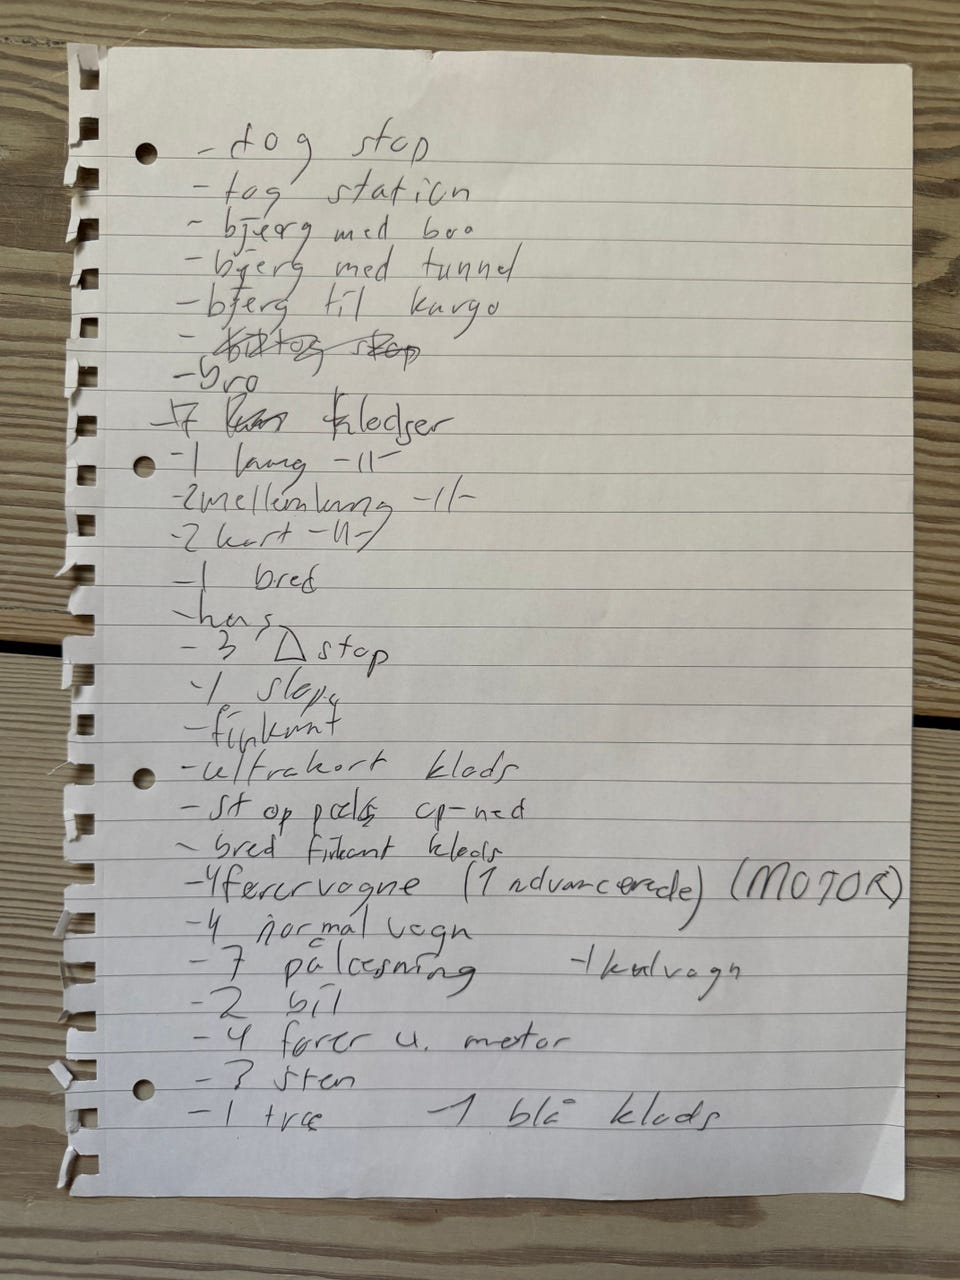 - tog stop
- tog station
- bjerg med
- bjerg med tunnel
- bjerg til kargo
-
- bro
-7 klodser
-1 lang -11-
-2 mellemlang -11-
-2 kort -11-
-1 bred
- hus
- 3 △ stop
-1
- firkant
- ultrakort klods
- stop op-ned
- bred firkant klods
-4 førervogne (1 advancerede) (MOTOR)
-4 normal vogn
- 7 pålæsning -1 kulvogn
-2 bil
- 4 fører u. motor
- 3 sten
- 1 træ -1 blå klods